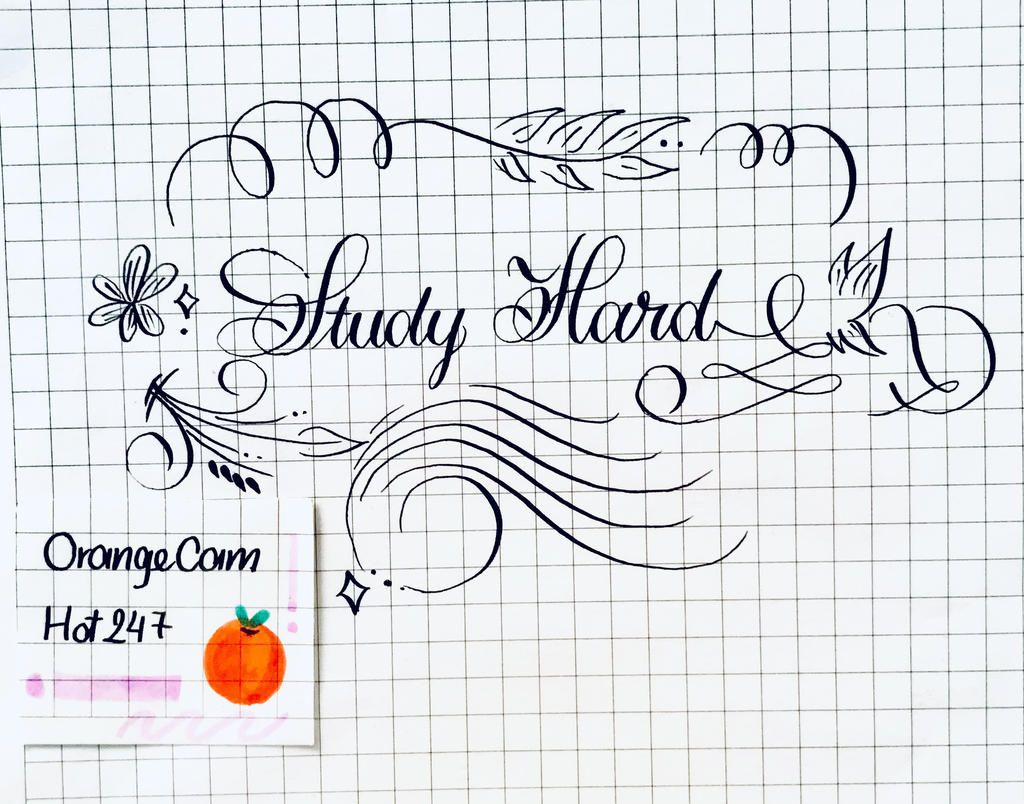 Study Hard
OrangeCam
Hot247